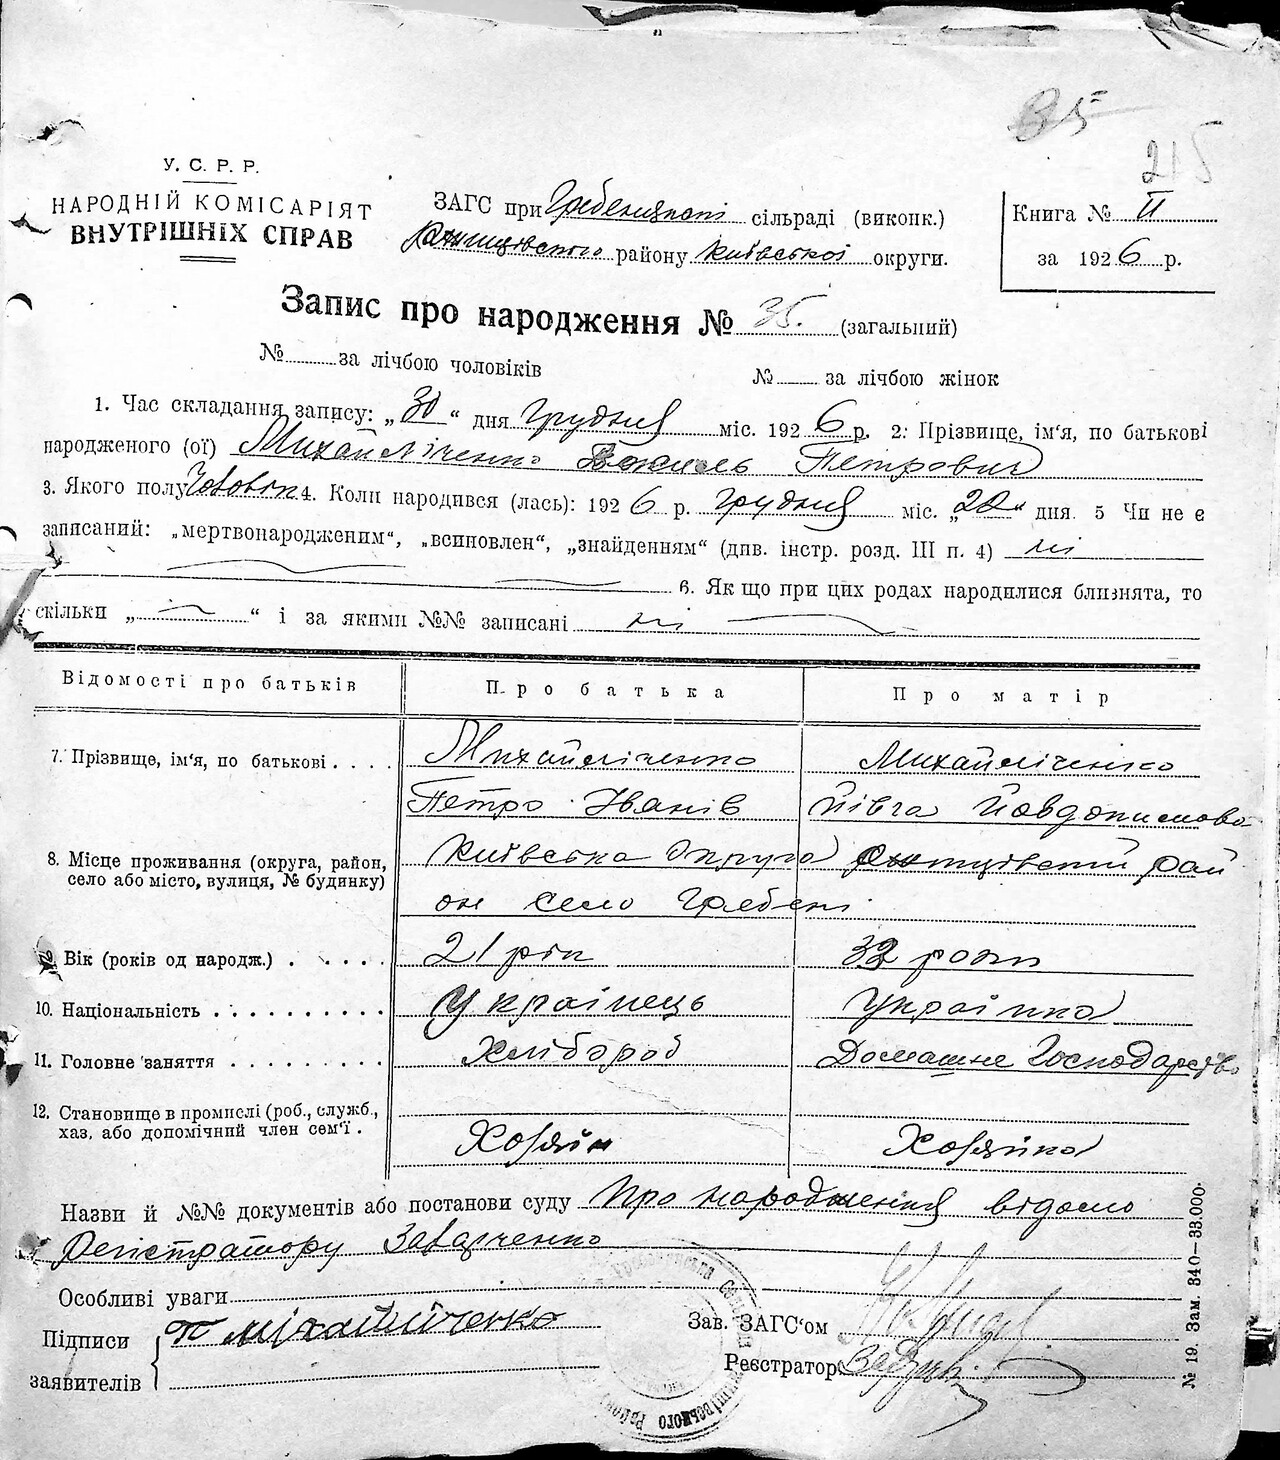 35
215
У. С. Р. Р.
НАРОДНІЙ КОМІСАРІЯТ
ВНУТРІШНІХ СПРАВ
ЗАГС при Гребенській сільраді (виконк.)
району Київської округи.
Книга № II
за 1926 р.
Запис про народження № 35. (загальний)
№ за лічбою чоловіків
№ за лічбою жінок
1. Час складання запису: „30“ дня Грудня міс. 1926 р. 2: Прізвище, ім'я, по батькові
народженого (ої) Михайліченко Василь Петрович
3. Якого полу Чоловік 4. Коли народився (лась): 1926 р. Грудня міс. „20“ дня. 5 Чи не є
записаний: „мертвонародженим“, „всиновлен“, „знайденням“ (див. інстр. розд. III п. 4) ні
6. Як що при цих родах народилися близнята, то
скільки „ “ і за якими №№ записані ні
Відомості про батьків
Про батька
Про матір
7. Прізвище, ім'я, по батькові . . . .
Михайліченко
Михайліченко
Петро Іванів
Півча
8. Місце проживання (округа, район,
село або місто, вулиця, № будинку)
Київська Округа рай
он село Гребені
9. Вік (років од народж.) . . . . .
21 рік
32 роки
10. Національність . . . . . . . . . .
Українець
Українка
11. Головне заняття . . . . . . . . .
Хлібороб
Домашнє Господарство
12. Становище в промислі (роб., служб.,
хаз. або допомічний член сем'ї .
Хозяїн
Хозяйка
Назви й №№ документів або постанови суду Про народження відомо
Регістратору Заварченко
Особливі уваги
Підписи
заявителів
П Міхайліченко
Зав. ЗАГС'ом
Реєстратор
№ 19. Зам. 340—33.000.